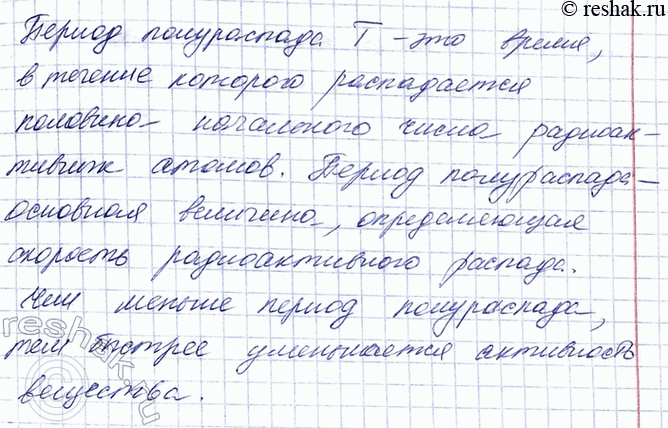 © reshak.ru
Период полураспада T - это время,
в течение которого распадается
половина начального числа радиоак-
тивных атомов. Период полураспада -
основная величина, определяющая
скорость радиоактивного распада.
Чем меньше период полураспада,
тем быстрее уменьшается активность
вещества.
reshak.ru